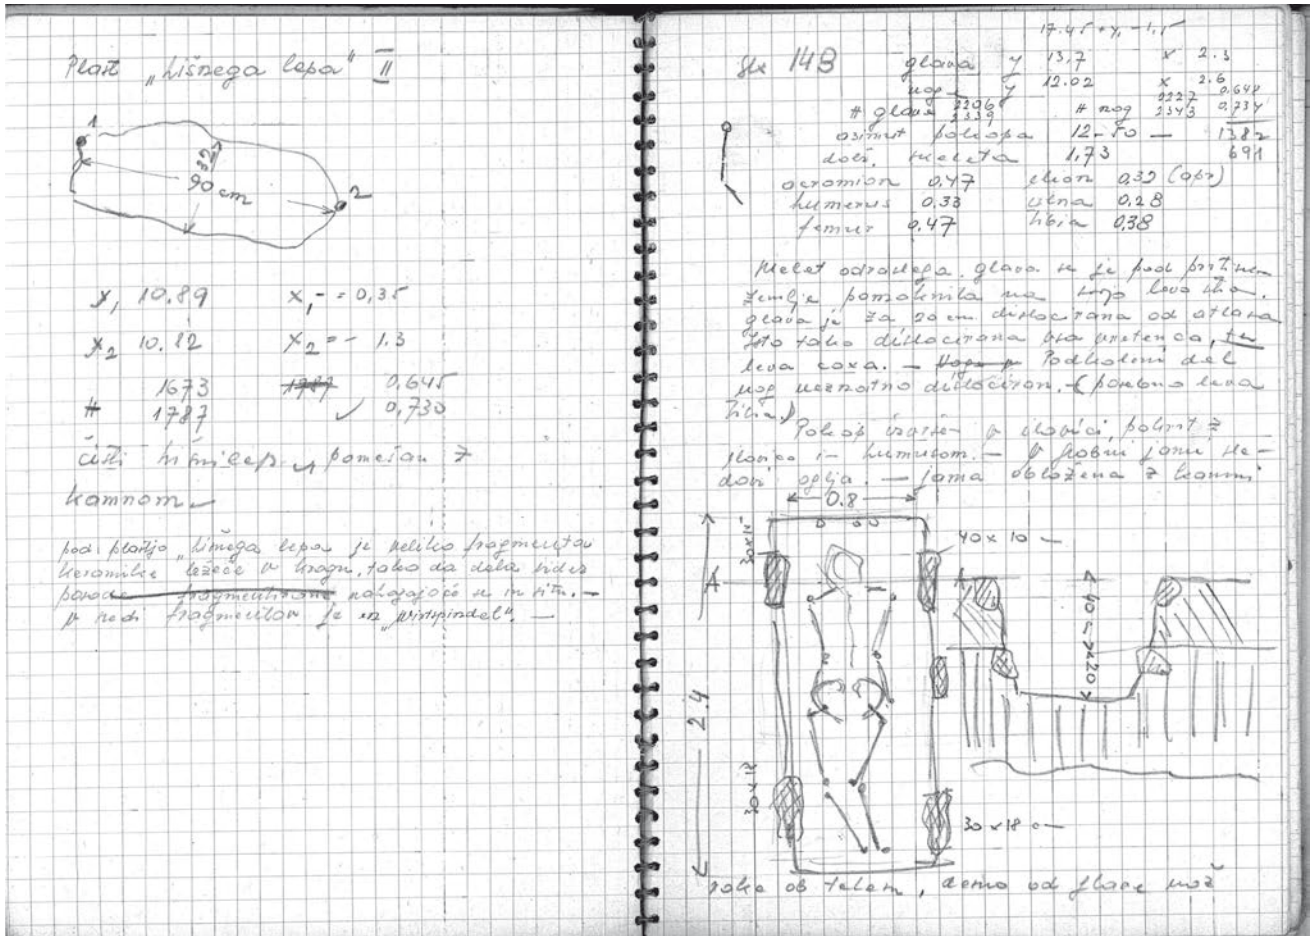 Plast „hišnega lepa" II
1
32
90 cm
2
y₁ 10.89 x₁ - = 0,35
y₂ 10.82 x₂ = - 1.3
1673 1787 0,645
# 1787 ✓ 0,730
čisti hišni lep pomešan z
kamnom
pod plastjo „hišnega lepa je veliko fragmentov
keramike ležeče v krogu, tako da dela videz
posode fragmentirane nahajajoče se in situ. —
V sredi fragmentov je „wirtspindel". —
17.45 + y, - 1,5
sk 148 glava y 13,7 x 2.3
noge y 12.02 x 2.6
# glava 2206 2339 # nog 2227 2343 0,648 0,734
asimut pokopa 12-50 — 1382
dolž. skeleta 1,73 691
acromion 0,47 0,32 (apr)
humerus 0,33 ulna 0,28
femur 0,47 tibia 0,38
Skelet odraslega. glava se je pod pritiskom
zemlje pomaknila na svojo levo stran.
glava je za 20 cm dislocirana od atlasa
Isto tako dislocirana vsa vretenca, ter
leva coxa. — Podkolenni del
nog neznatno dislociran. (posebno leva
tibia)
Pokop izvršen v ilovici, pokrit z
ilovico in humusom. — V grobni jami sle-
dovi oglja. — jama obložena z kamni
0.8
30x15
40 x 10
A
40 → x20
2.4
30x18
30 x 18
roke ob telem, desno od glave nož